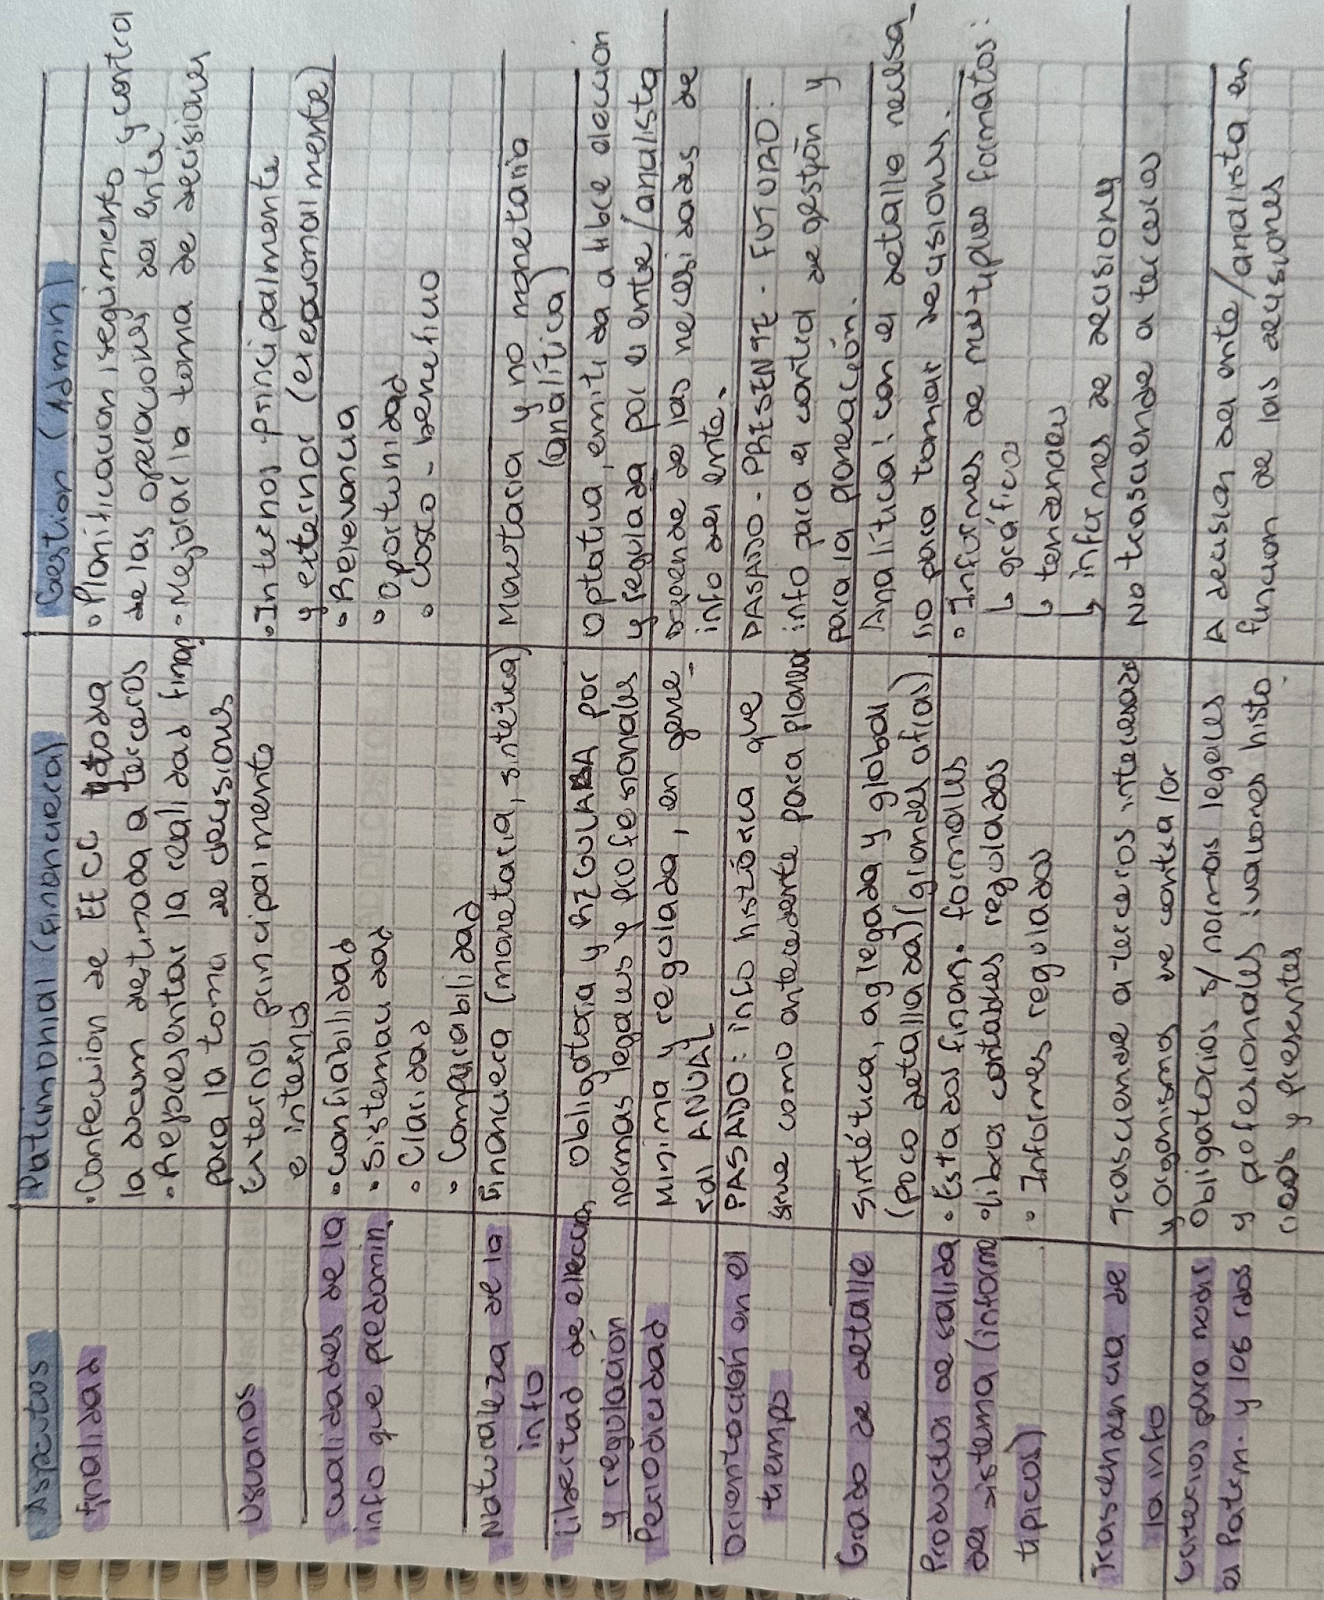 Aspectos
Patrimonial (Financiera)
Gestion (Admin)
finalidad
• Confección de EECC y toda
la docum destinada a terceros
• Representar la realidad finan.
para la toma de decisiones
• Planificacion, seguimiento y control
de las operaciones del ente
• Mejorar la toma de decisiones
Usuarios
Externos principalmente
e internos
• Internos principalmente
y externos (excepcionalmente)
Cualidades de la
info que predomin.
• Confiabilidad
• Sistematicidad
• Claridad
• Comparabilidad
• Relevancia
• Oportunidad
• Costo - beneficio
Naturaleza de la
info
Financiera (monetaria, sintética)
Monetaria y no monetaria
(analítica)
Libertad de elección
y regulación
obligatoria y REGULADA por
normas legales y profesionales
Optativa, emitida a libre eleccion
y regulada por el ente/analista
Periodicidad
Minima y regulada, en gene-
ral ANUAL
Depende de las necesidades de
info del ente.
Orientación en el
tiempo
PASADO: info histórica que
sirve como antecedente para planea
PASADO - PRESENTE - FUTURO:
info para el control de gestión y
para la planeación.
Grado de detalle
Sintética, agregada y global
(poco detallada) (grandes cifras)
Analítica: con el detalle necesa-
rio para tomar decisiones.
Productos de salida
del sistema (informe
tipicos)
• Estados finan. formales
• libros contables regulados
• Informes regulados
• Informes de multiples formatos:
↳ gráficos
↳ tendencias
↳ informes de decisiones
Trascendencia de
la info
Trasciende a terceros interesados
y organismos de contralor
No trasciende a terceros
Criterios para medir
el Patrim. y los rdos
Obligatorios s/ normas legales
y profesionales: valores histo
ricos y presentes
A decision del ente/analista en
funcion de las decisiones